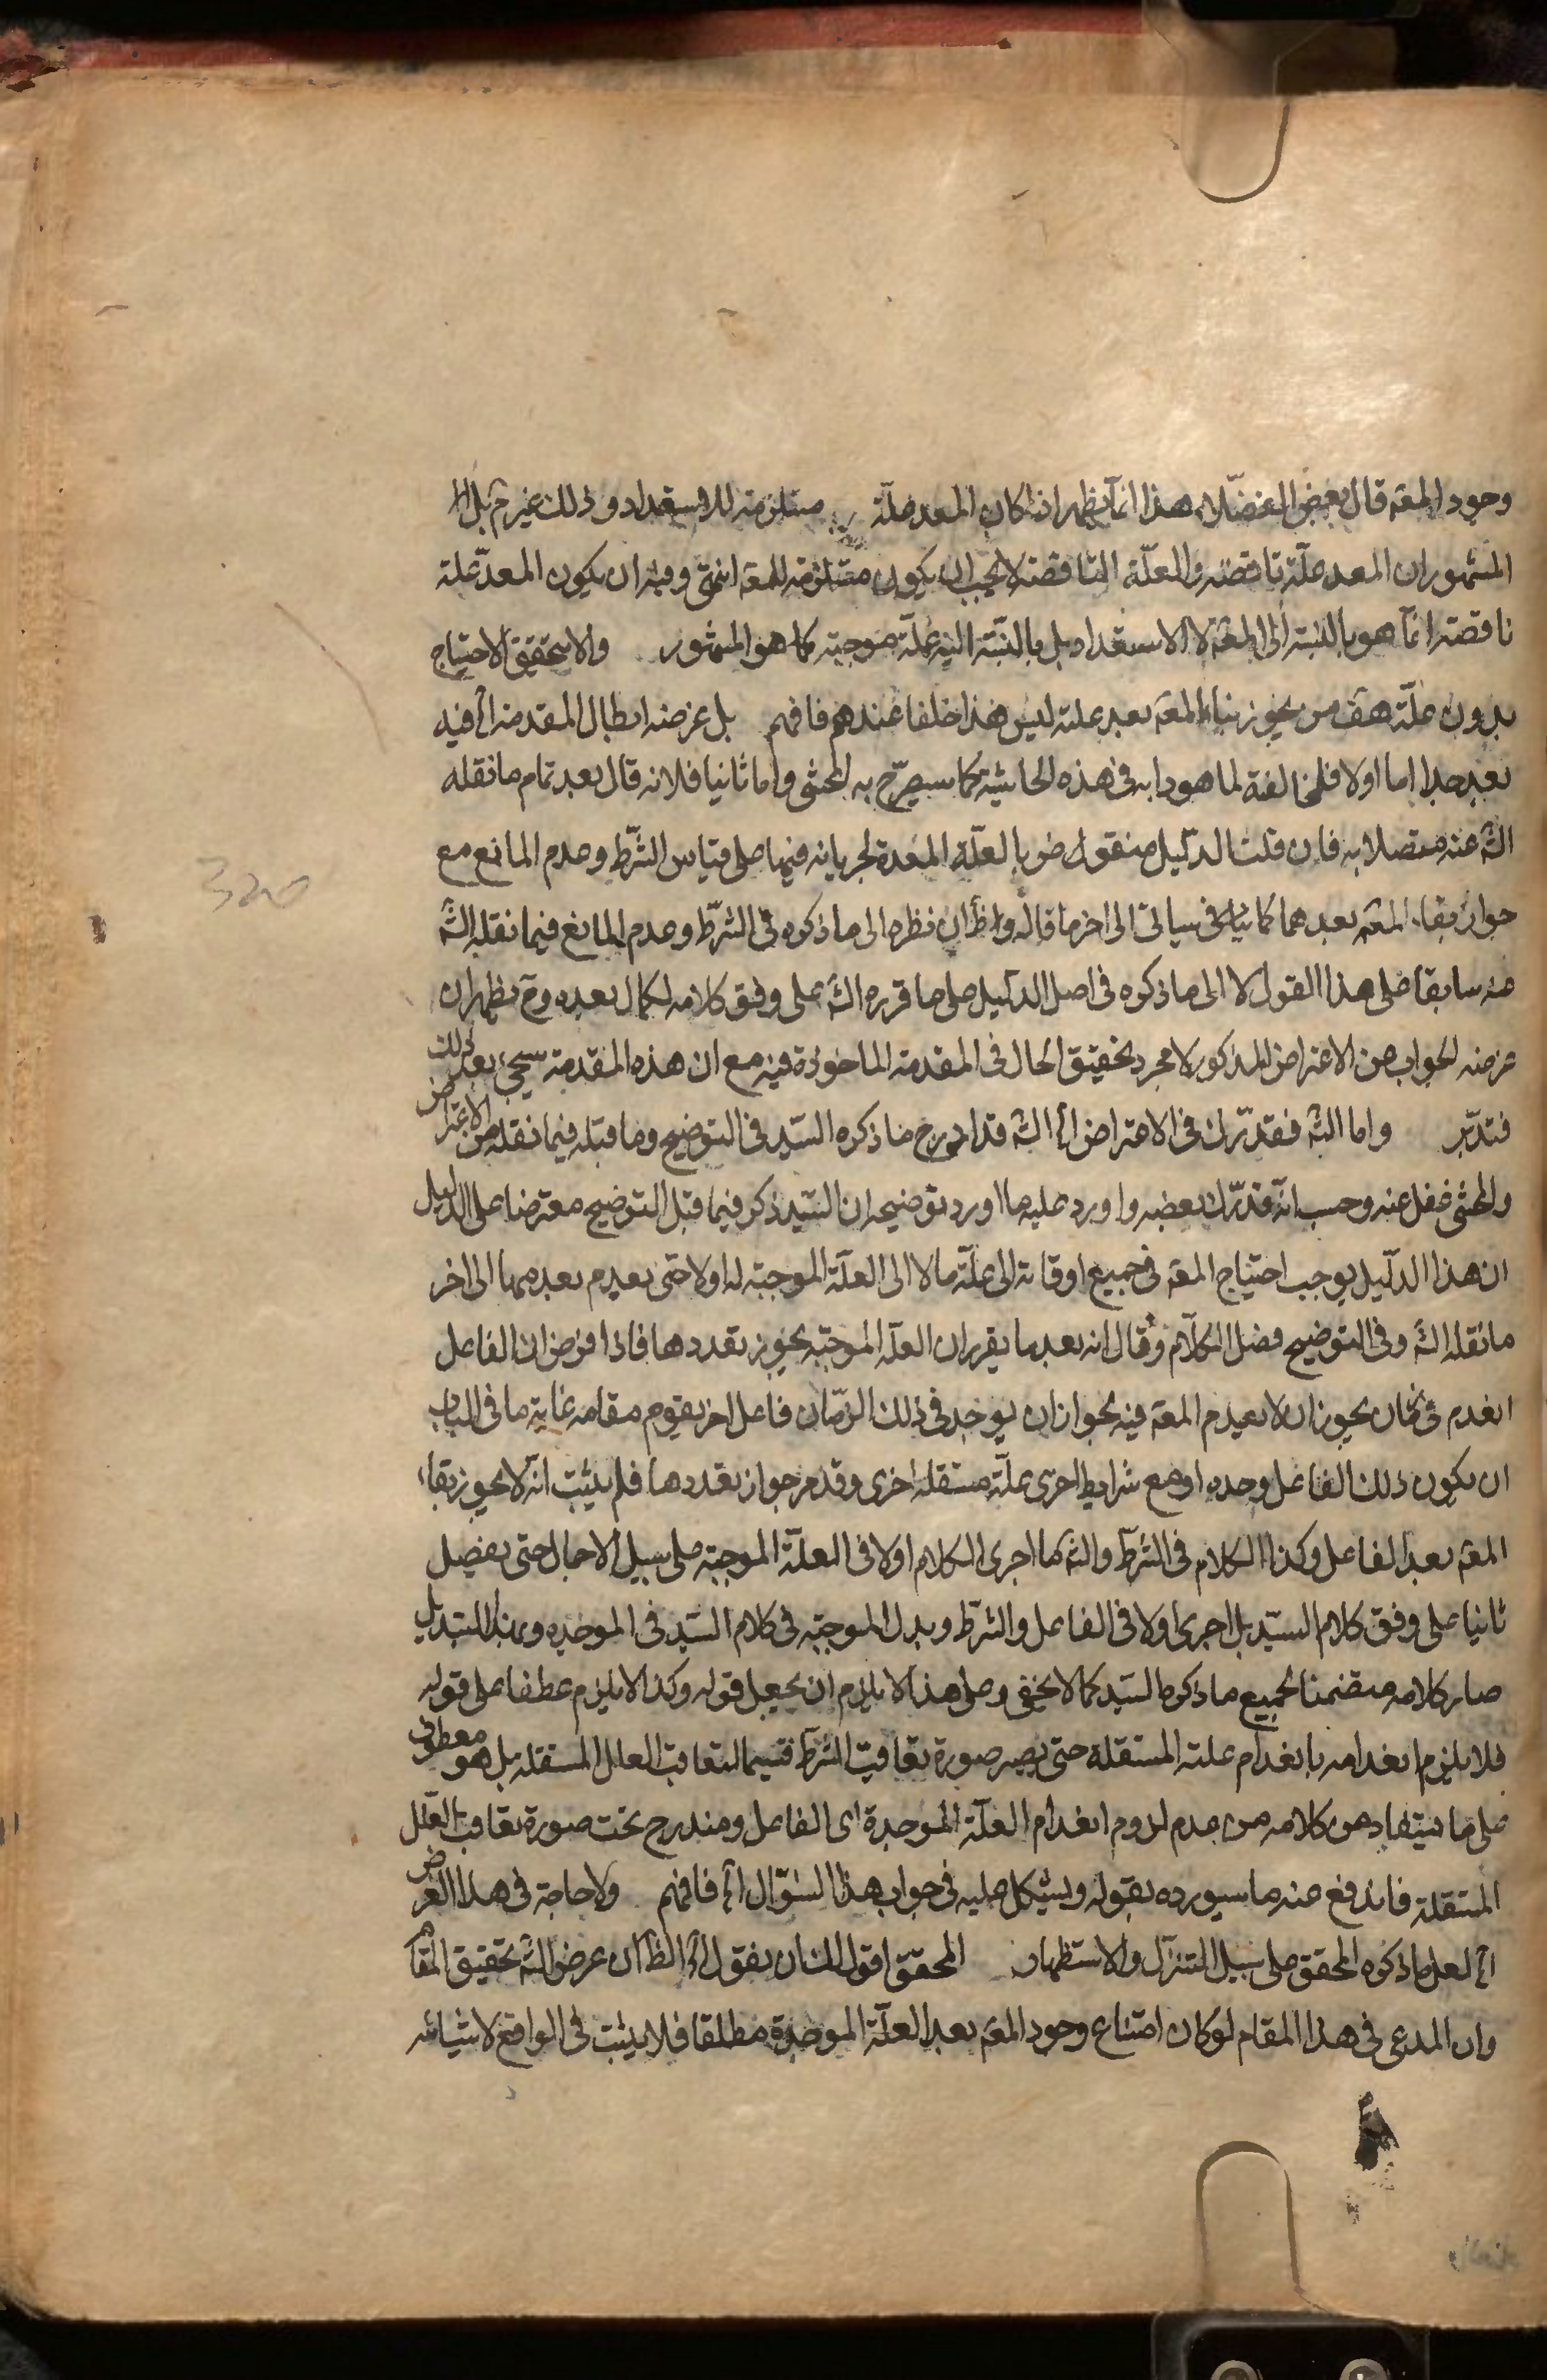 وجود المعه قال بعض الفضلاء هذا انما يظهر اذا كان المعد علة مستلزمة للاستعداد وذلك غير م بل
المشهور ان المعد علة ناقصة والعلة الناقصة لا يجب ان يكون مستلزمة للمعه انتهى وفيه ان يكون المعد علة
ناقصة انما هو بالنسبة الى المعه لا الاستعداد بل بالنسبة اليه علة موجبة كما هو المشهور والا يتحقق الاحتياج
بدون علة هف من يجوز بقاء المعه بعد علته ليس هذا خلفا عندهم فافهم بل غرضه ابطال المقدمة الخ فيه
بعد جدا اما اولا فلمخالفة لما هو دابه في هذه الحاشية كما سيصرح به المحشى واما ثانيا فلانه قال بعد تمام ما نقله
الش عنه متصلا به فان قلت الدليل منقوض بالعلة المعدة لجريانه فيها على قياس الشرط وعدم المانع مع
جواز بقاء المعه بعدهما كما سياتى الى اخر ما قاله والظ ان نظره الى ما ذكره في الشرط وعدم المانع فيما نقله الش
عنه سابقا على هذا القول لا الى ما ذكره في اصل الدليل على ما قرره الش على وفق كلامه لكمال بعده وح يظهر ان
غرضه الجواب عن الاعتراض المذكور لا مجرد تحقيق الحال في المقدمة الماخوذة فيه مع ان هذه المقدمة سيجئ بعد ذلك
فتدبر واما الش فقد ترك في الاعتراض الخ الش قد ادرج ما ذكره السيد في التوضيح وما قبله فيما نقله من الاعتراض
والمحشى غفل عنه وحسب انه قد ترك بعضه واورد عليه ما اورد توضيحه ان السيد ذكر فيما قبل التوضيح معترضا على الدليل
ان هذا الدليل يوجب احتياج المعه في جميع اوقاته الى علة ما لا الى العلة الموجبة له اولا حتى يعدم بعدمها الى اخر
ما نقله الش وفى التوضيح فصل الكلام وقال انه بعد ما يقرر ان العلة الموجبة يجوز تعددها فاذا فرض ان الفاعل
انعدم في زمان يجوز ان لا يعدم المعه فيه بجواز ان يوجد في ذلك الزمان فاعل اخر يقوم مقامه غاية ما في الباب
ان يكون ذلك الفاعل وحده او مع شرايط اخرى علة مستقلة اخرى وقد مر جواز تعددها فلم يثبت انه لا يجوز بقاء
المعه بعد الفاعل وكذا الكلام في الشرط والش ما اجرى الكلام اولا في العلة الموجبة على سبيل الاجمال حتى يفصل
ثانيا على وفق كلام السيد بل اجرى اولا في الفاعل والشرط وبدل الموجبة في كلام السيد في الموجده وبهذا التبديل
صار كلامه متضمنا لجميع ما ذكره السيد كما لا يخفى وعلى هذا لا يلزم ان يجعل قوله وكذا لا يلزم عطفا على قوله
فلا يلزم انعدامه بانعدام علته المستقلة حتى يصير صورة تعاقب الشرط قسيما لتعاقب العلل المستقلة بل هو معطوف
على ما يستفاد من كلامه من عدم لزوم انعدام العلة الموجدة اى الفاعل ومندرج تحت صورة تعاقب العلل
المستقلة فاندفع منه ما سيورده بقوله ويشكل عليه في جواب هذا السؤال الخ فافهم ولا حاجة في هذا الغرض
الخ لعل ما ذكره المحقق على سبيل التنزل والاستظهار المحقق اقول لك ان يقول الخ الظ ان غرض الش تحقيق المقام
وان المدعى في هذا المقام لو كان امتناع وجود المعه بعد العلة الموجدة مطلقا فلا يثبت في الواقع